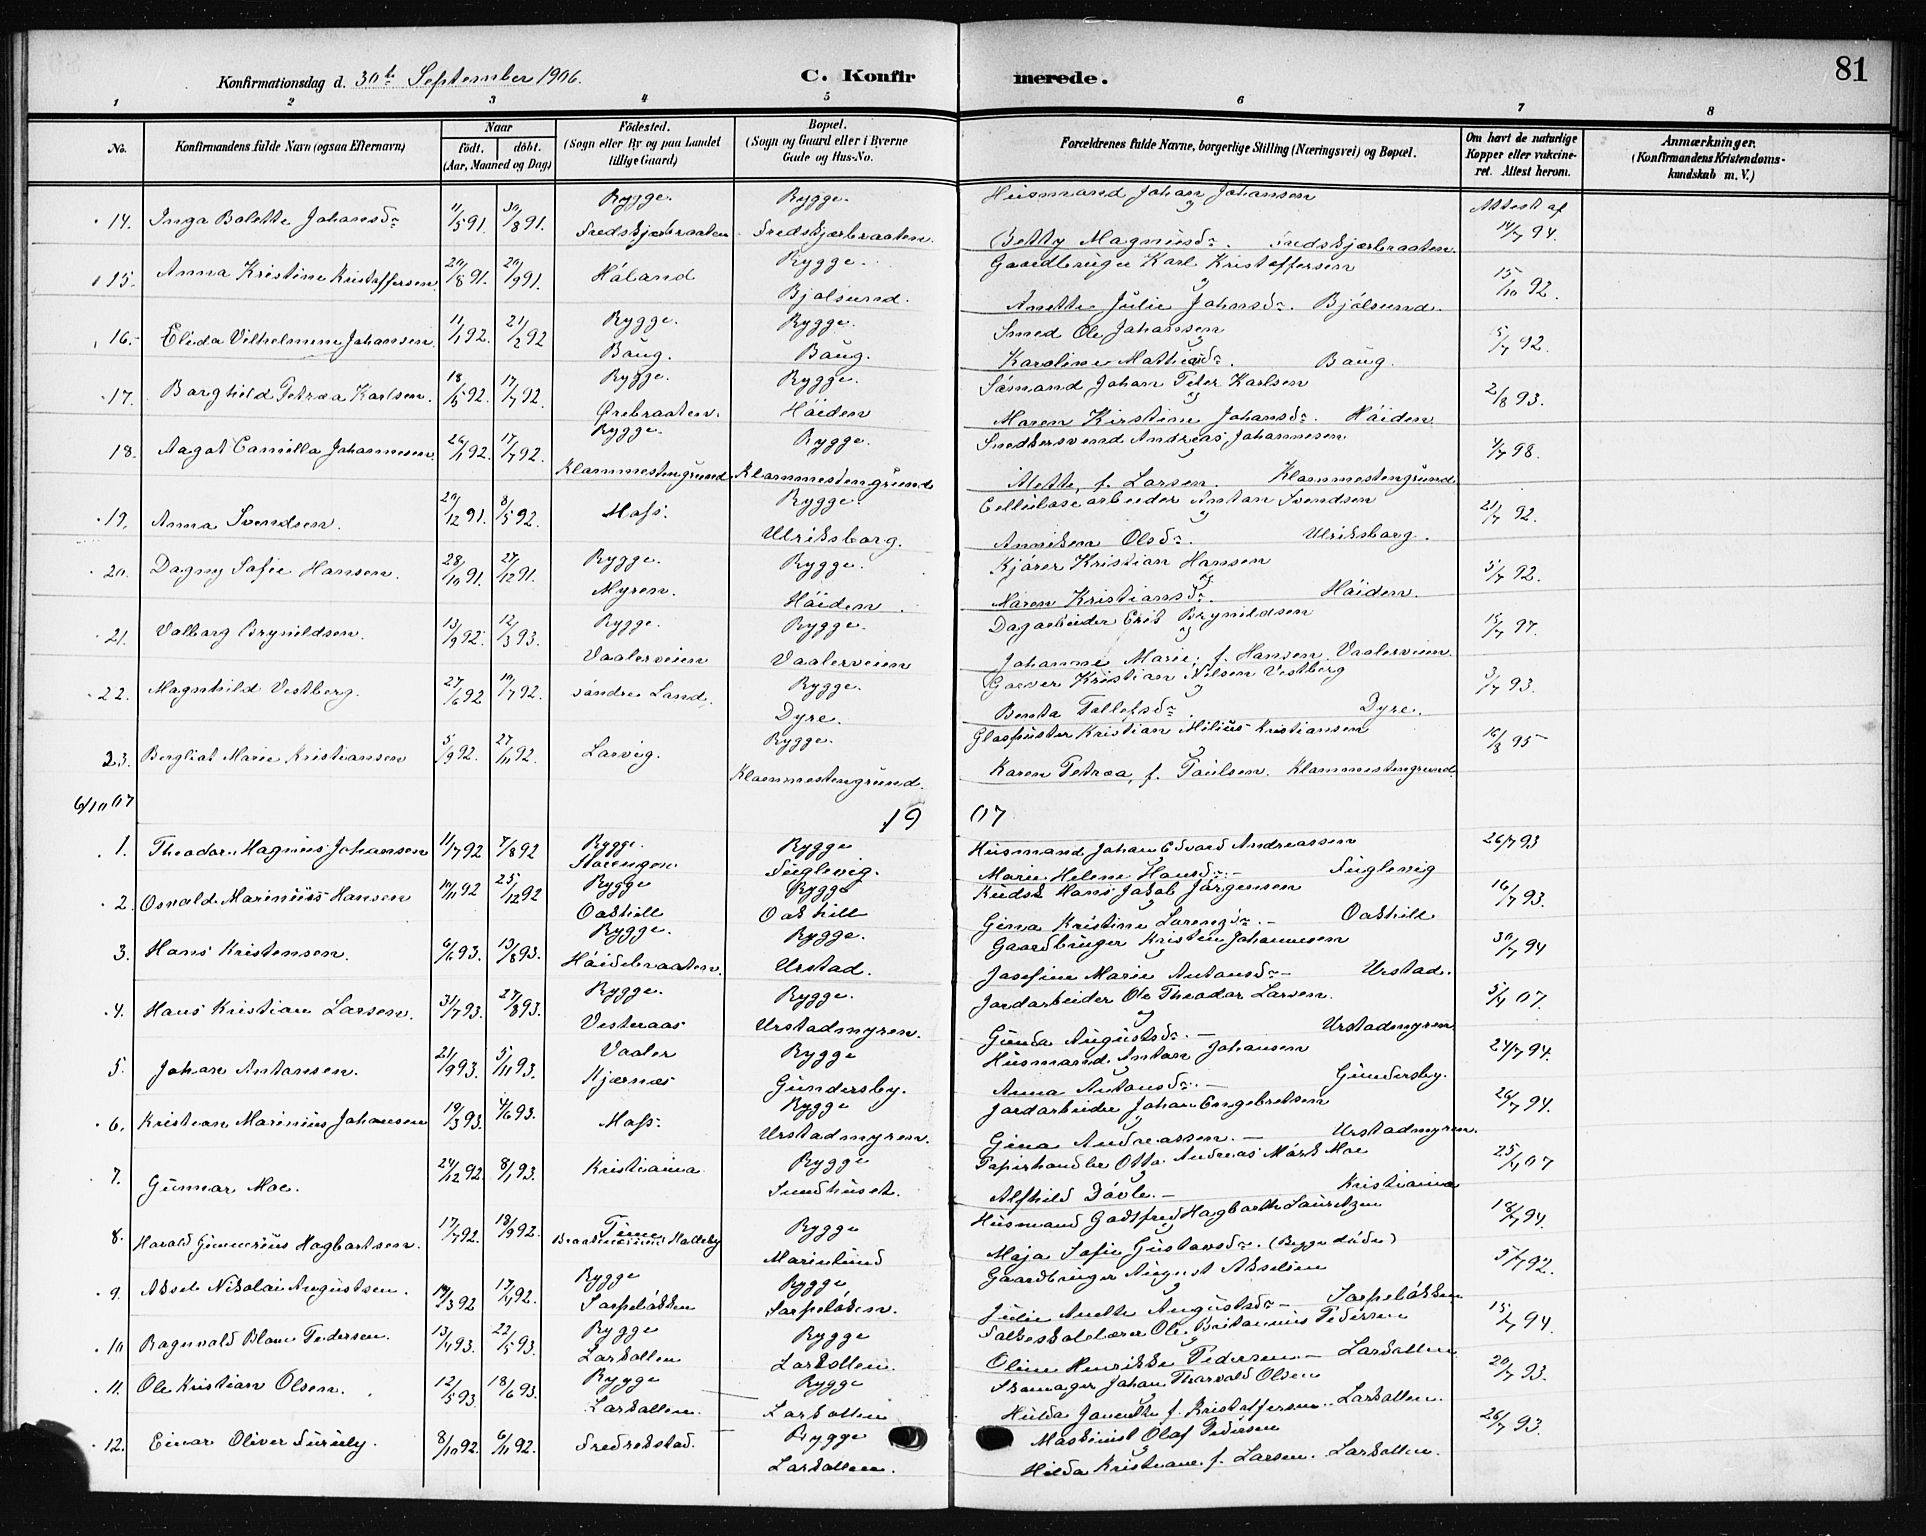 Konfirmationsdag d. 30te September 1906.
C. Konfirmerede.
81
1 2 3 4 5 6 7 8
No.
Konfirmandens fulde Navn (ogsaa Efternavn)
Naar
födt. döbt.
(Aar, Maaned og Dag)
Födested.
(Sogn eller By og paa Landet tillige Gaard)
Bopæl.
(Sogn og Gaard eller i Byerne Gade og Hus-No.
Forældrenes fulde Navne, borgerlige Stilling (Næringsvei) og Bopæl.
Om havt de naturlige Kopper eller vakcineret. Attest herom.
Anmærkninger.
(Konfirmandens Kristendomskundskab m. V.)
14. Inga Bolette Johansdr 11/5 91. 30/8 91. Rygge. Rygge. Husmand Johan Johansen Attest af
Fredskjærbraaten Fredskjærbraaten. og Betty Magnusdr. Fredskjærbraaten 14/7 94.
15. Anna Kristine Kristoffersen 20/8 91. 20/9 91. Håland Rygge. Gaardbruger Karl Kristoffersen 15/10 92.
Bjölsund. og Anette Julie Johnsdr. Bjölsund.
16. Elida Vilhelmine Johansen 11/1 92. 21/2 92 Rygge. Rygge. Smed Ole Johansen 5/7 92.
Baug. Baug. Karoline Mathisdr. Baug.
17. Borghild Petræa Karlsen. 18/5 92. 17/7 92. Rygge. Rygge. Sömand Johan Peter Karlsen 2/8 93.
Örebraaten. Höiden og Maren Kirstine Johansdr. Höiden.
18. Aagot Camilla Johannesen. 26/1 92. 17/7 92. Rygge. Rygge. Snedkersvend Andreas Johannesen 4/7 98.
Klommestengrund Klommestengrund og Alette, f. Larsen. Klommestengrund.
19. Anna Svendsen. 20/12 91. 8/5 92. Moss. Rygge. Cellulosearbeider Anton Svendsen 21/7 92.
Ulriksborg. og Anniken Olsdr. Ulriksborg.
20. Dagny Sofie Hansen. 28/10 91. 27/12 91. Rygge. Rygge. Kjörer Kristian Hansen 5/7 92.
Myren. Höiden. og Maren Kristiansdr. Höiden.
21. Valborg Brynildsen. 13/9 92. 12/3 93. Rygge. Rygge. Dagarbeider Erik Brynildsen 15/7 97.
Vaalerveien Vaalerveien og Johanne Marie, f. Hansen, Vaalerveien.
22. Magnhild Vestberg. 27/6 92 10/7 92. söndre Land. Rygge. Garver Kristian Nilsen Vestberg 3/7 93.
Dyre. og Benta Tollefsdr. Dyre.
23. Bergliot Marie Kristiansen 5/9 92. 27/11 92. Larvig. Rygge. Glaspuster Kristian Milius Kristiansen 16/8 95
Klommestengrund. og Karen Petræa, f. Paulsen. Klommestengrund.
6/10 07
1907
1. Theodor Magnus Johansen 11/7 92 7/8 92 Rygge. Rygge Husmand Johan Edvard Andreassen 26/7 93
Storengen Fuglevig. Marie Helene Hansdr. Fuglevig
2. Osvald Marinius Hansen 10/11 92 25/12 92 Rygge Rygge Kudsk Hans Jakob Jörgensen 16/7 93.
Oakhill Oakhill Gina Kristine Larensdr. Oakhill
3. Hans Kristensen. 6/6 93. 13/8 93. Rygge. Rygge. Gaardbruger Kristen Johannesen 30/7 94
Höidebraaten. Urstad. og Josefine Marie Antonsdr. Urstad.
4. Hans Kristian Larsen. 31/7 93. 27/8 93. Rygge. Rygge. Jordarbeider Ole Theodor Larsen. 5/4 07.
Vesteraas Urstadmyren. og Gunda Augustsdr. Urstadmyren
5. Johan Antonsen. 21/9 93. 5/11 93. Vaaler Rygge Husmand Anton Johansen 24/7 94.
Kjærnæs Gundersby. Anna Antonsdr. Gundersby.
6. Kristian Marinius Johansen 19/3 93. 4/6 93. Moss. Rygge Jordarbeider Johan Engebretsen 26/7 94.
Urstadmyren. og Gina Andreassen. Urstadmyren.
7. Gunnar Moe. 24/12 92. 8/1 93. Kristiania Rygge Papirhandler Otto Andreas Mörk Moe 25/4 07
Sundhuset. Alfhild Dövle. Kristiania
8. Harald Gunnerius Hagbartsen. 17/7 92. 18/9 92. Rygge Husmand Godtfred Hagbarth Lauritzen 18/7 94.
Marielund og Maja Sofie Gustavsdr. (Begge döde)
9. Aksel Nikolai Augustsen. 10/3 92 17/4 92. Rygge Rygge Gaardbruger August Akselsen 5/7 92.
Sorpelökken Sorpelökken. og Julie Anette Augustsdr. Sorpelökken
10 Ragnvald Blom Pedersen. 13/4 93. 22/5 93. Rygge Rygge Folkeskolelærer Ole Britanius Pedersen 15/7 94.
Larkollen Larkollen. og Oline Henrikke Pedersen. Larkollen
11. Ole Kristian Olsen. 12/5 93. 18/6 93. Rygge Rygge Skomager Johan Thorvald Olsen 20/7 93.
Larkollen. Larkollen Hulda Janette f. Kristoffersen. Larkollen.
12. Einar Oliver Furuly. 8/10 92. 6/11 92. Fredrekstad. Rygge Maskinist Olaf Pedersen 26/7 93.
Larkollen. Hilda Kristiane f. Larsen. Larkollen.